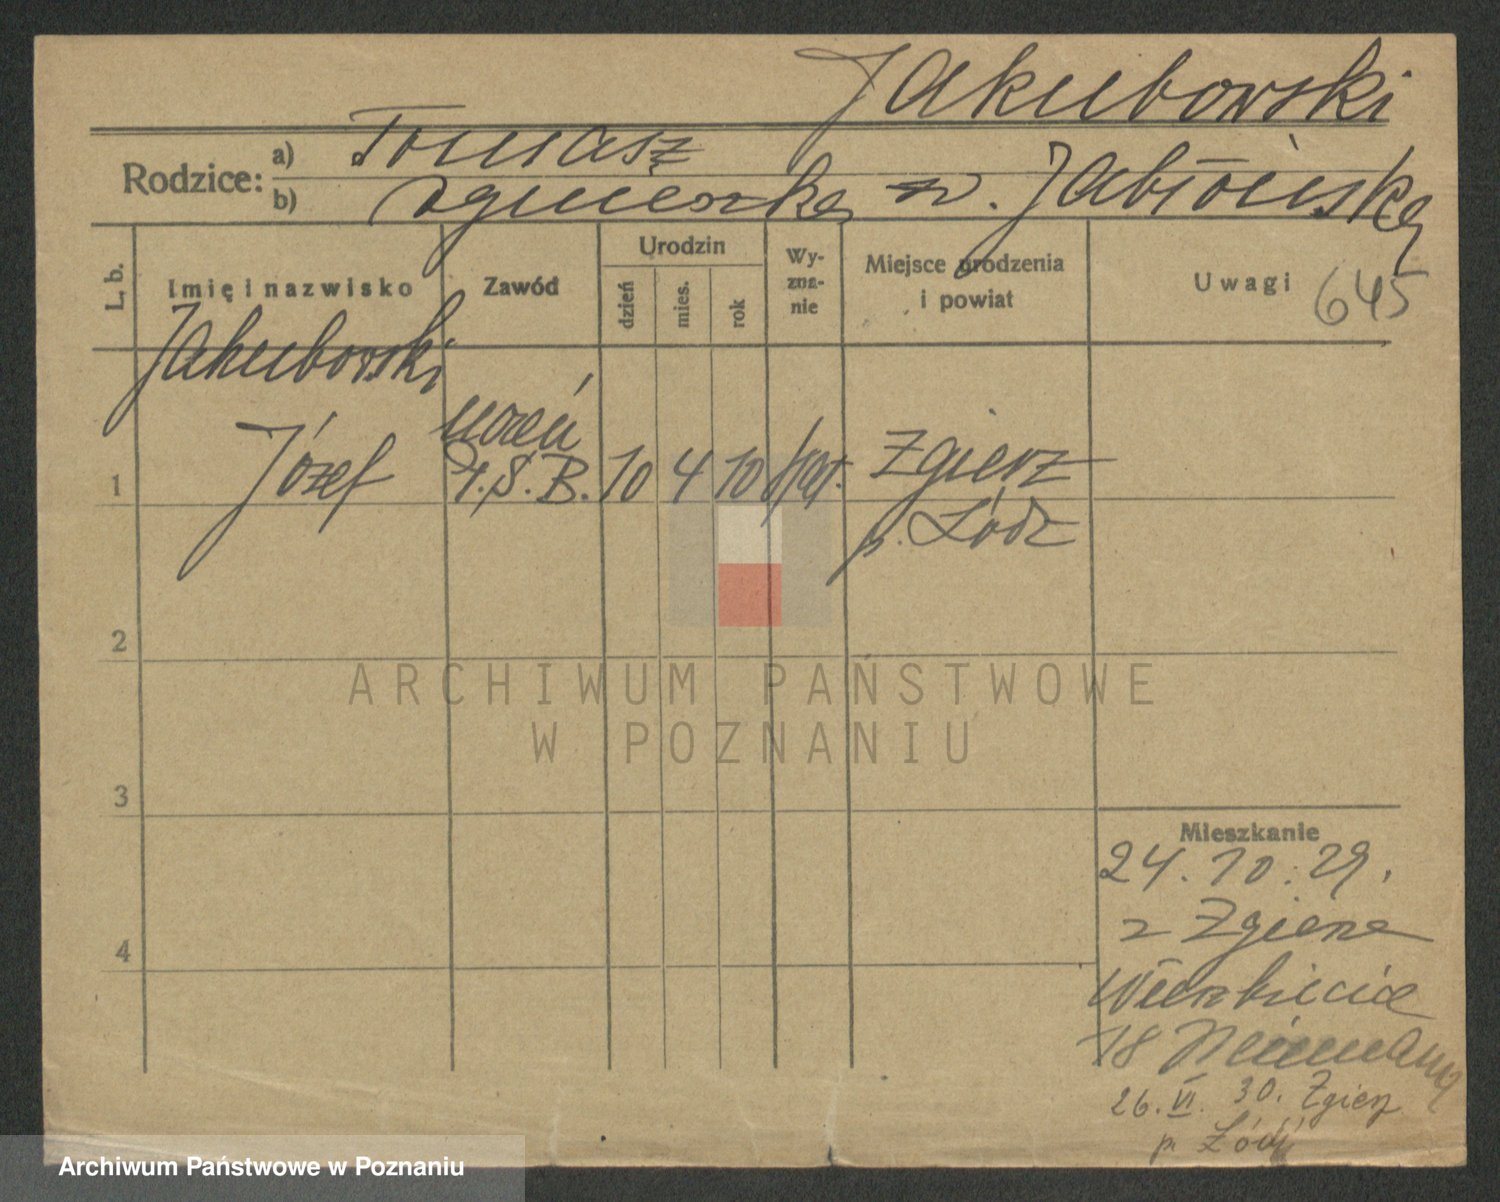 Jakubowski
Rodzice:
a) Tomasz
b) Agnieszka z. Jabłońska
L. b.
Imię i nazwisko
Zawód
Urodzin
dzień
mies.
rok
Wy-
zna-
nie
Miejsce urodzenia
i powiat
Uwagi 645
Jakubowski
uczeń
1 Józef P.S.B. 10 4 10 kat. Zgierz
p. Łódź
2
ARCHIWUM PAŃSTWOWE
W POZNANIU
3
Mieszkanie
24.10.29.
z Zgierza
4
18
26.VI.30. Zgierz
p. Łódź
Archiwum Państwowe w Poznaniu